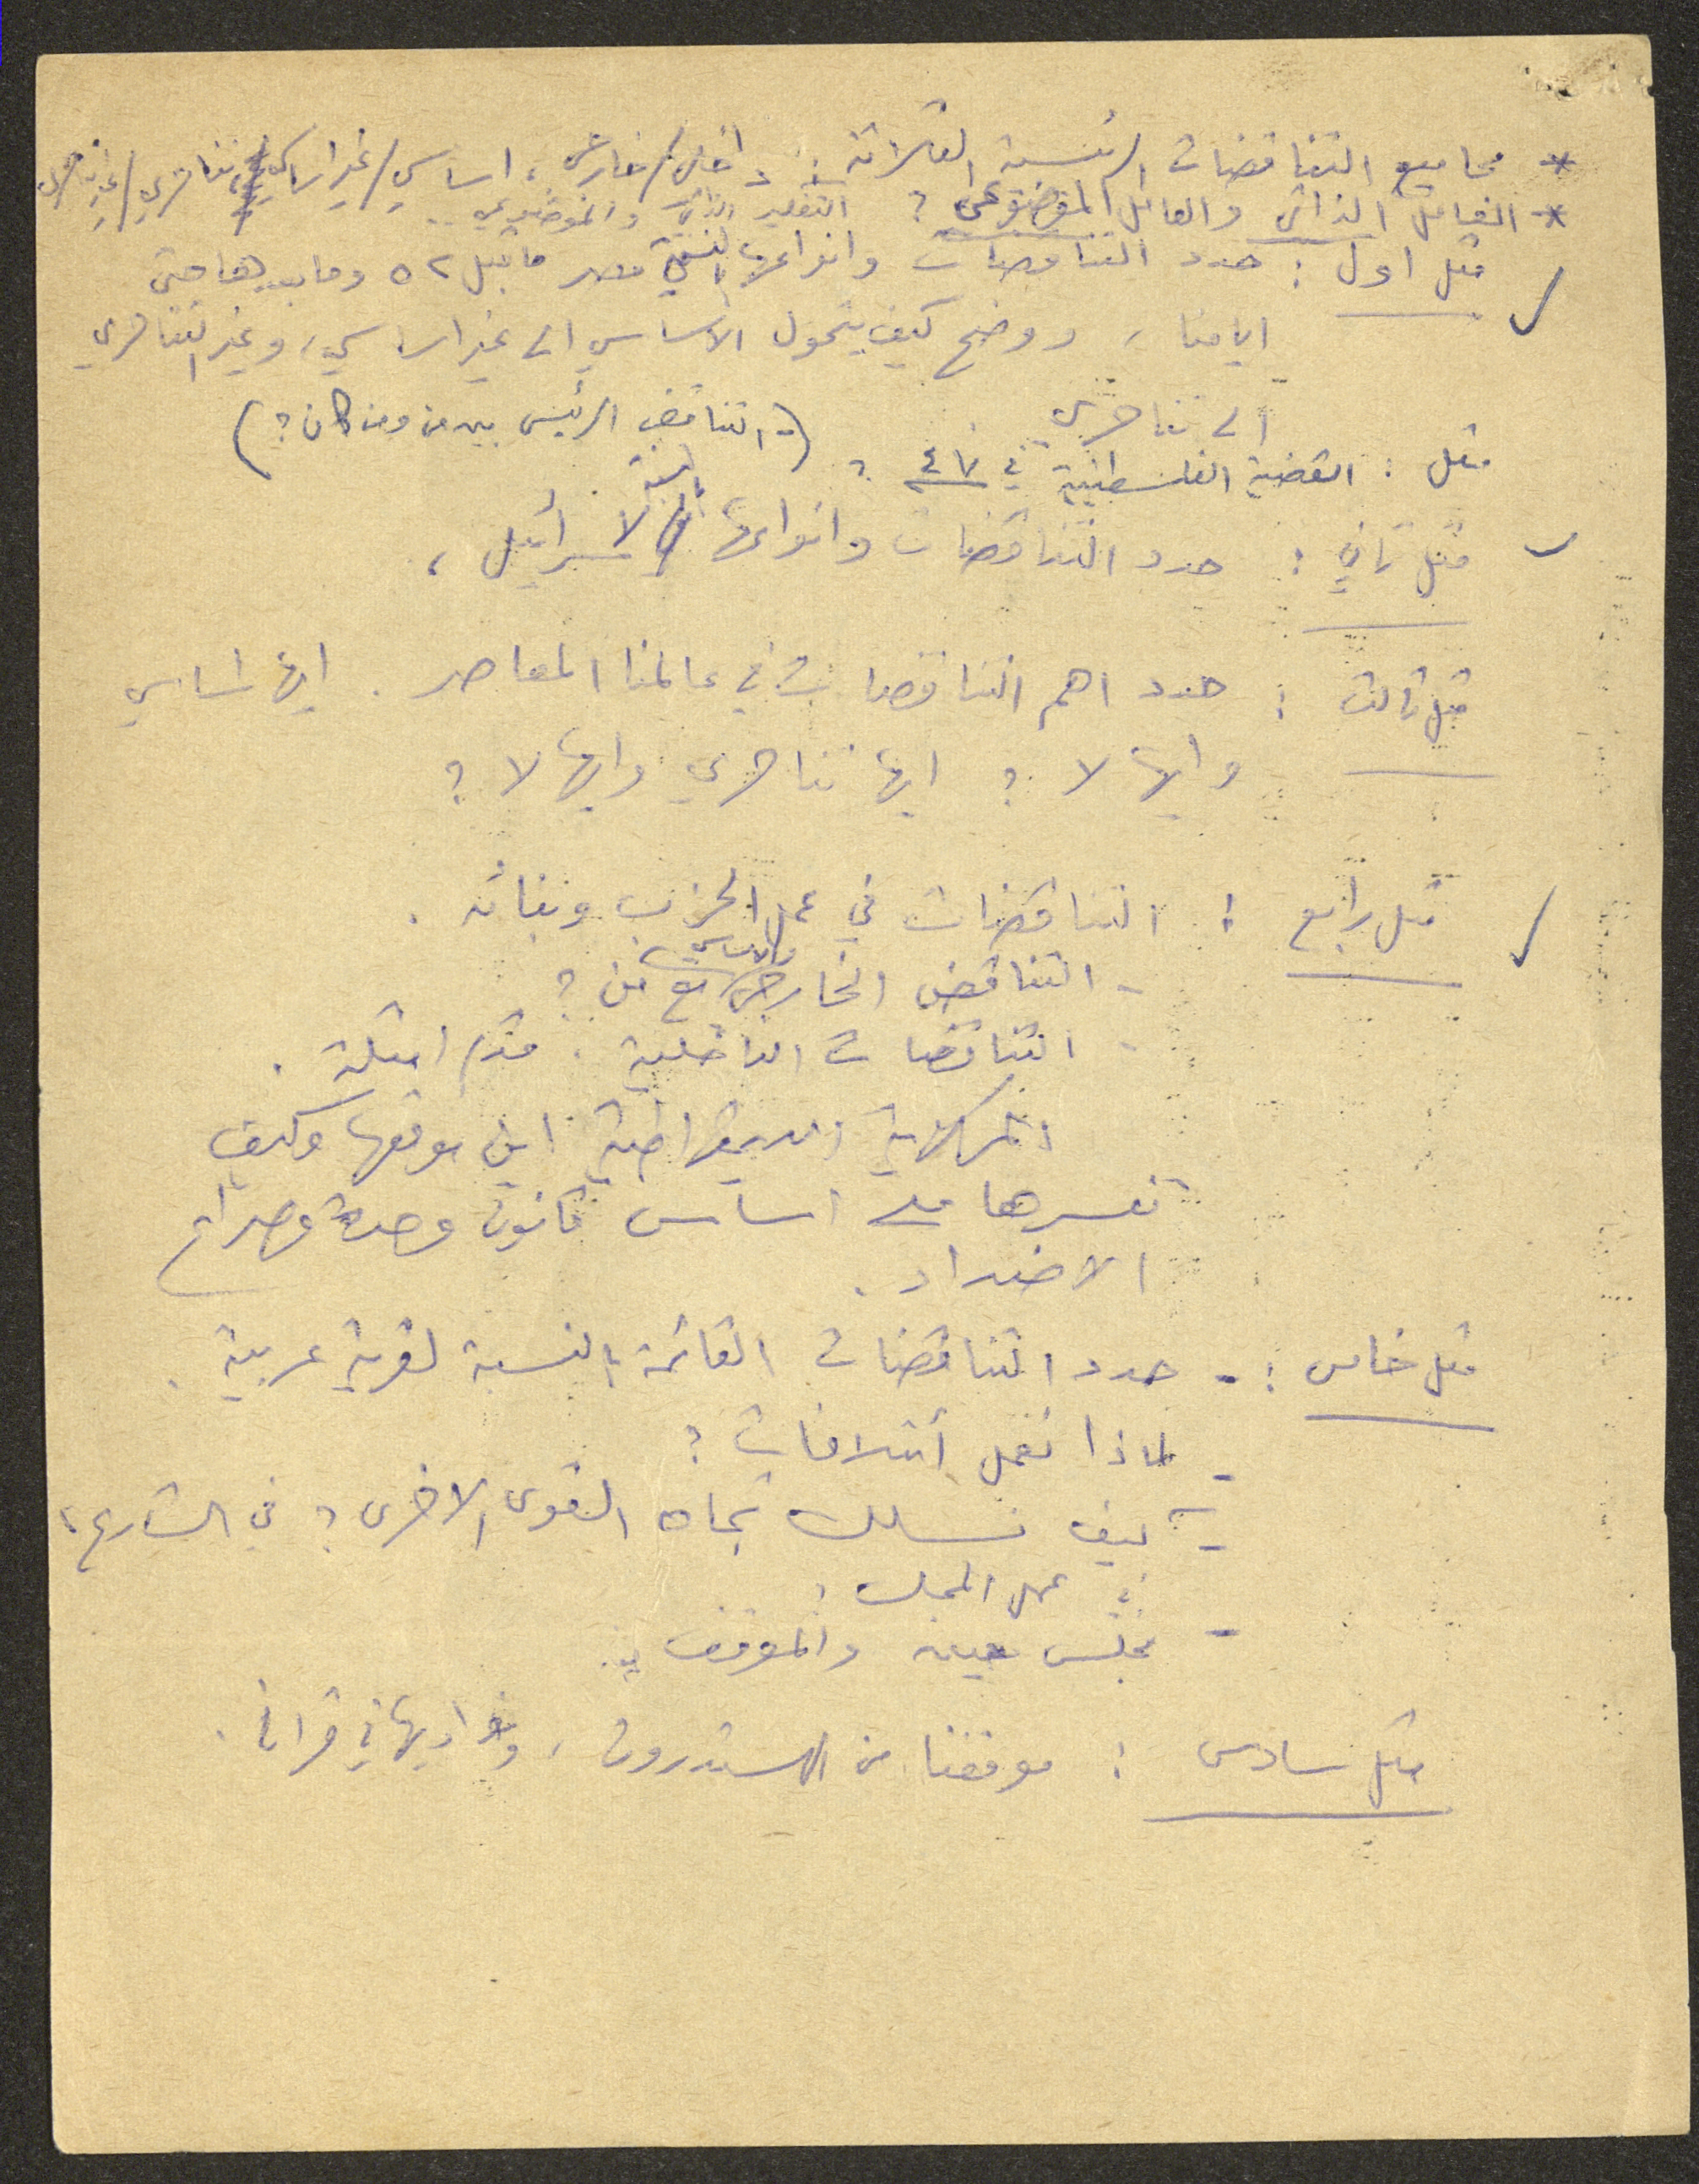 * مجاميع التناقضات الرئيسية الثلاثة : داخلي/خارجي ، اساسي/غير اساسي ، تناحري/غير تناحري
* العامل الذاتي والعامل الموضوعي ? التفكير الذاتي والموضوعي ..
مثل اول : حدد التناقضات وانواعها بالنسبة لمصر ما قبل ٥٢ وما بعدها حتى
ايامنا ، ووضح كيف يتحول الاساسي الى غير اساسي ، وغير التناحري
الى تناحري
مثل : القضية الفلسطينية في ٤٧ ? (- التناقض الرئيسي بين من ومن كان ?)
مثل ثاني : حدد التناقضات وانواعها بالنسبة لاسرائيل ،
مثل ثالث : حدد اهم التناقضات في عالمنا المعاصر . ايها اساسي
وايها لا ? ايها تناحري وايها لا ?
مثل رابع : التناقضات في عمل الحزب وبنائه .
- التناقض الخارجي والاساسي مع من ?
- التناقضات الداخلية . قدم امثلة .
المركزية الديمقراطية اين موقعها وكيف
تفسرها على اساس قانون وحدة وصراع
الاضداد .
مثل خامس : - حدد التناقضات القائمة بالنسبة لقرية عربية .
- لماذا نعمل أئتلافات ?
- كيف نسلك تجاه القوى الاخرى ? في الشارع ،
في عمل المجلس ?
- مجلس معين والموقف ..
مثل سادس : موقفنا من الهستدروت ، ونواديها في قرانا .